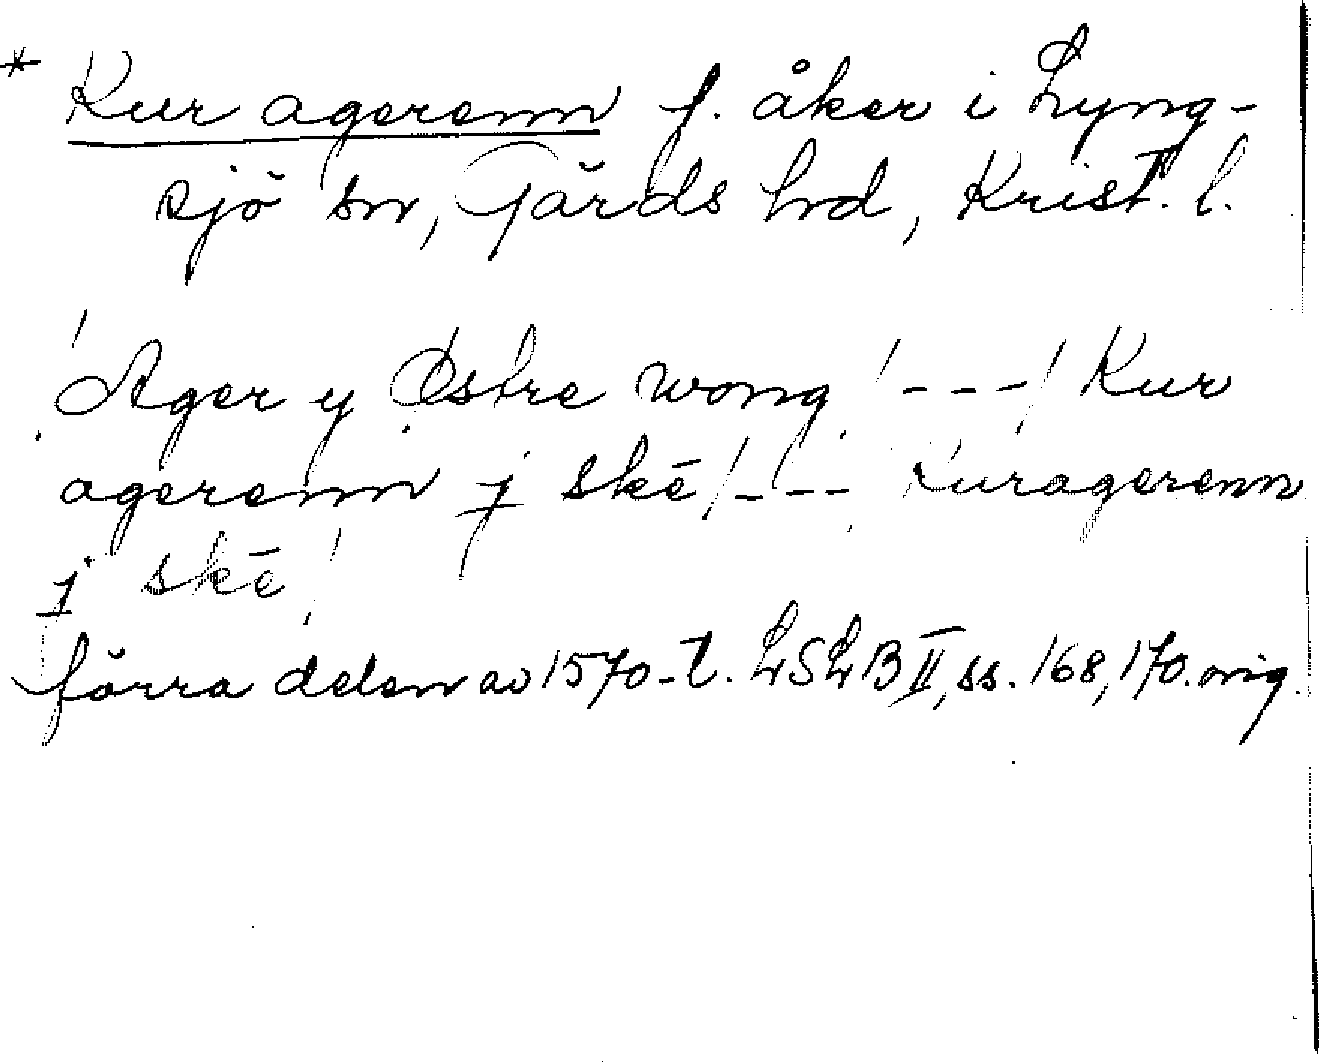 * Kur agerenn f. åker i Lyng-
sjö sn, Gärds hrd, Krist. l.
/Ager y Østre wong /---/ Kur
agerenn j ské /--- Kuragerenn
j ské/
förra delen av 1570-t. LSLB II, ss. 168, 170. orig.